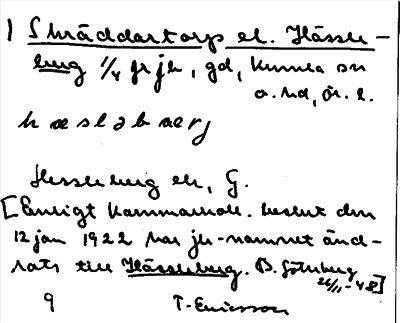 1 Skräddartorp el. Hässle-
berg 1/4 fr jb, gd, Kumla sn
o. hd, Ör. l.
hæsləbærj
Hessleberg ek, G.
[Enligt Kammarkoll. beslut den
12 jan 1922 har jb-namnet änd-
rats till Hässleberg. B. Göteberg
26/11-48]
9 T. Ericsson